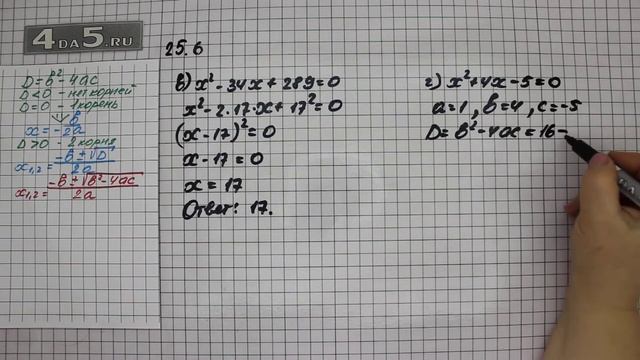 4DA5.RU
D=b²-4ac
D<0 - нет корней
D=0 - 1 корень
x=-b/2a
D>0 - 2 корня
x₁,₂=(-b±√D)/2a
x₁,₂=(-b±√b²-4ac)/2a
25.6
в) x²-34x+289=0
x²-2·17·x+17²=0
(x-17)²=0
x-17=0
x=17
Ответ: 17.
г) x²+4x-5=0
a=1, b=4, c=-5
D=b²-4ac=16-